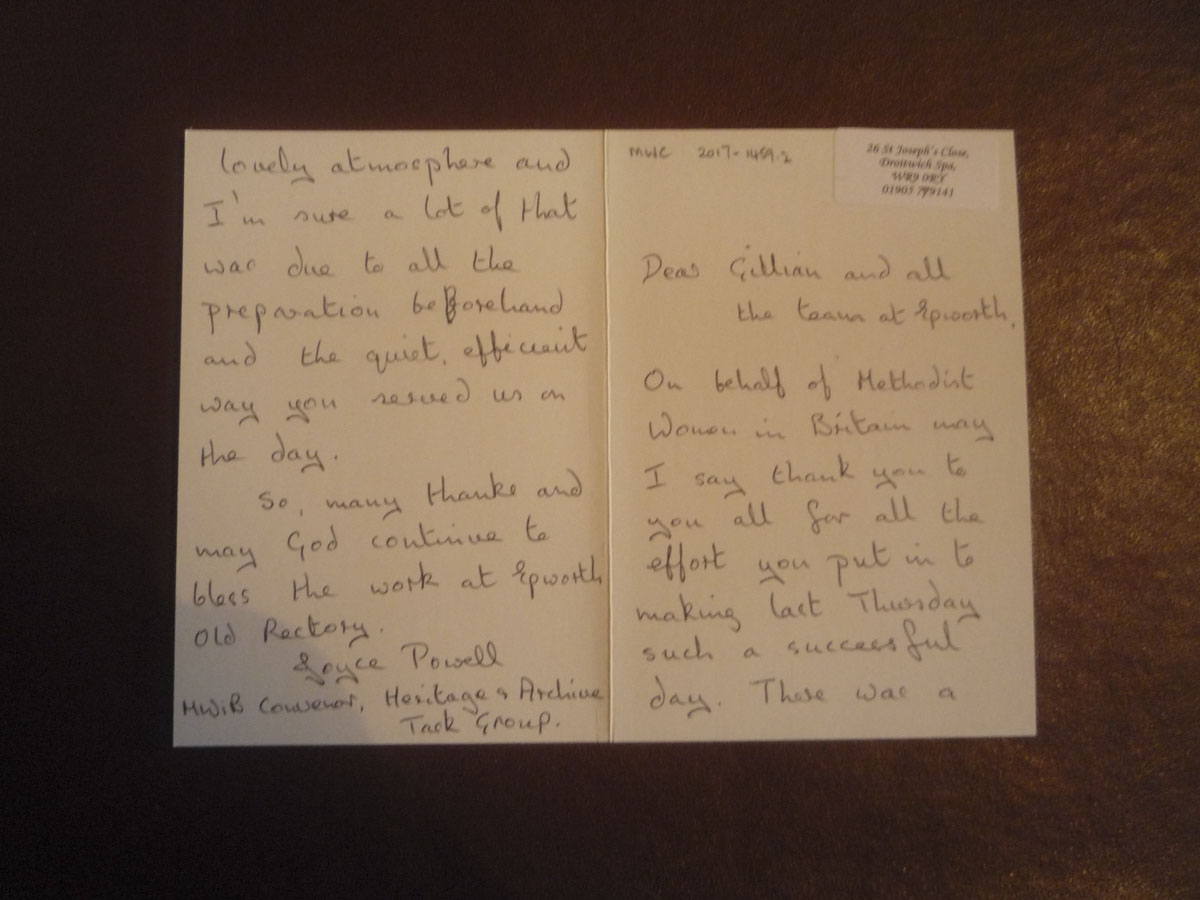 MWC 2017-1459.2
26 St Joseph's Close,
Droitwich Spa,
WR9 0RY
01905 779141
Dear Gillian and all
the team at Epworth,
On behalf of Methodist
Women in Britain may
I say thank you to
you all for all the
effort you put in to
making last Thursday
such a successful
day. There was a
lovely atmosphere and
I'm sure a lot of that
was due to all the
preparation beforehand
and the quiet, efficient
way you served us on
the day.
So, many thanks and
may God continue to
bless the work at Epworth
Old Rectory.
Joyce Powell
MWiB Convenor, Heritage & Archive
Task Group.